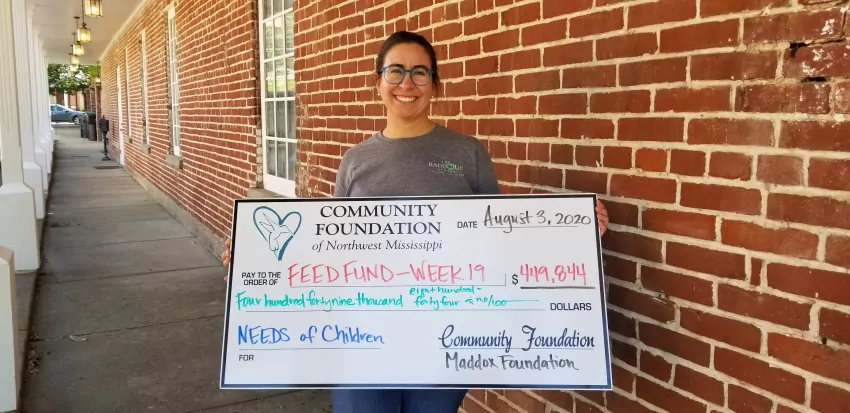 COMMUNITY
FOUNDATION
of Northwest Mississippi
DATE August 3, 2020
PAY TO THE
ORDER OF FEED FUND-WEEK 19 $449,844
Four hundred forty nine thousand eight hundred-
forty four & no/100 DOLLARS
NEEDS of Children
FOR
Community Foundation
Maddox Foundation